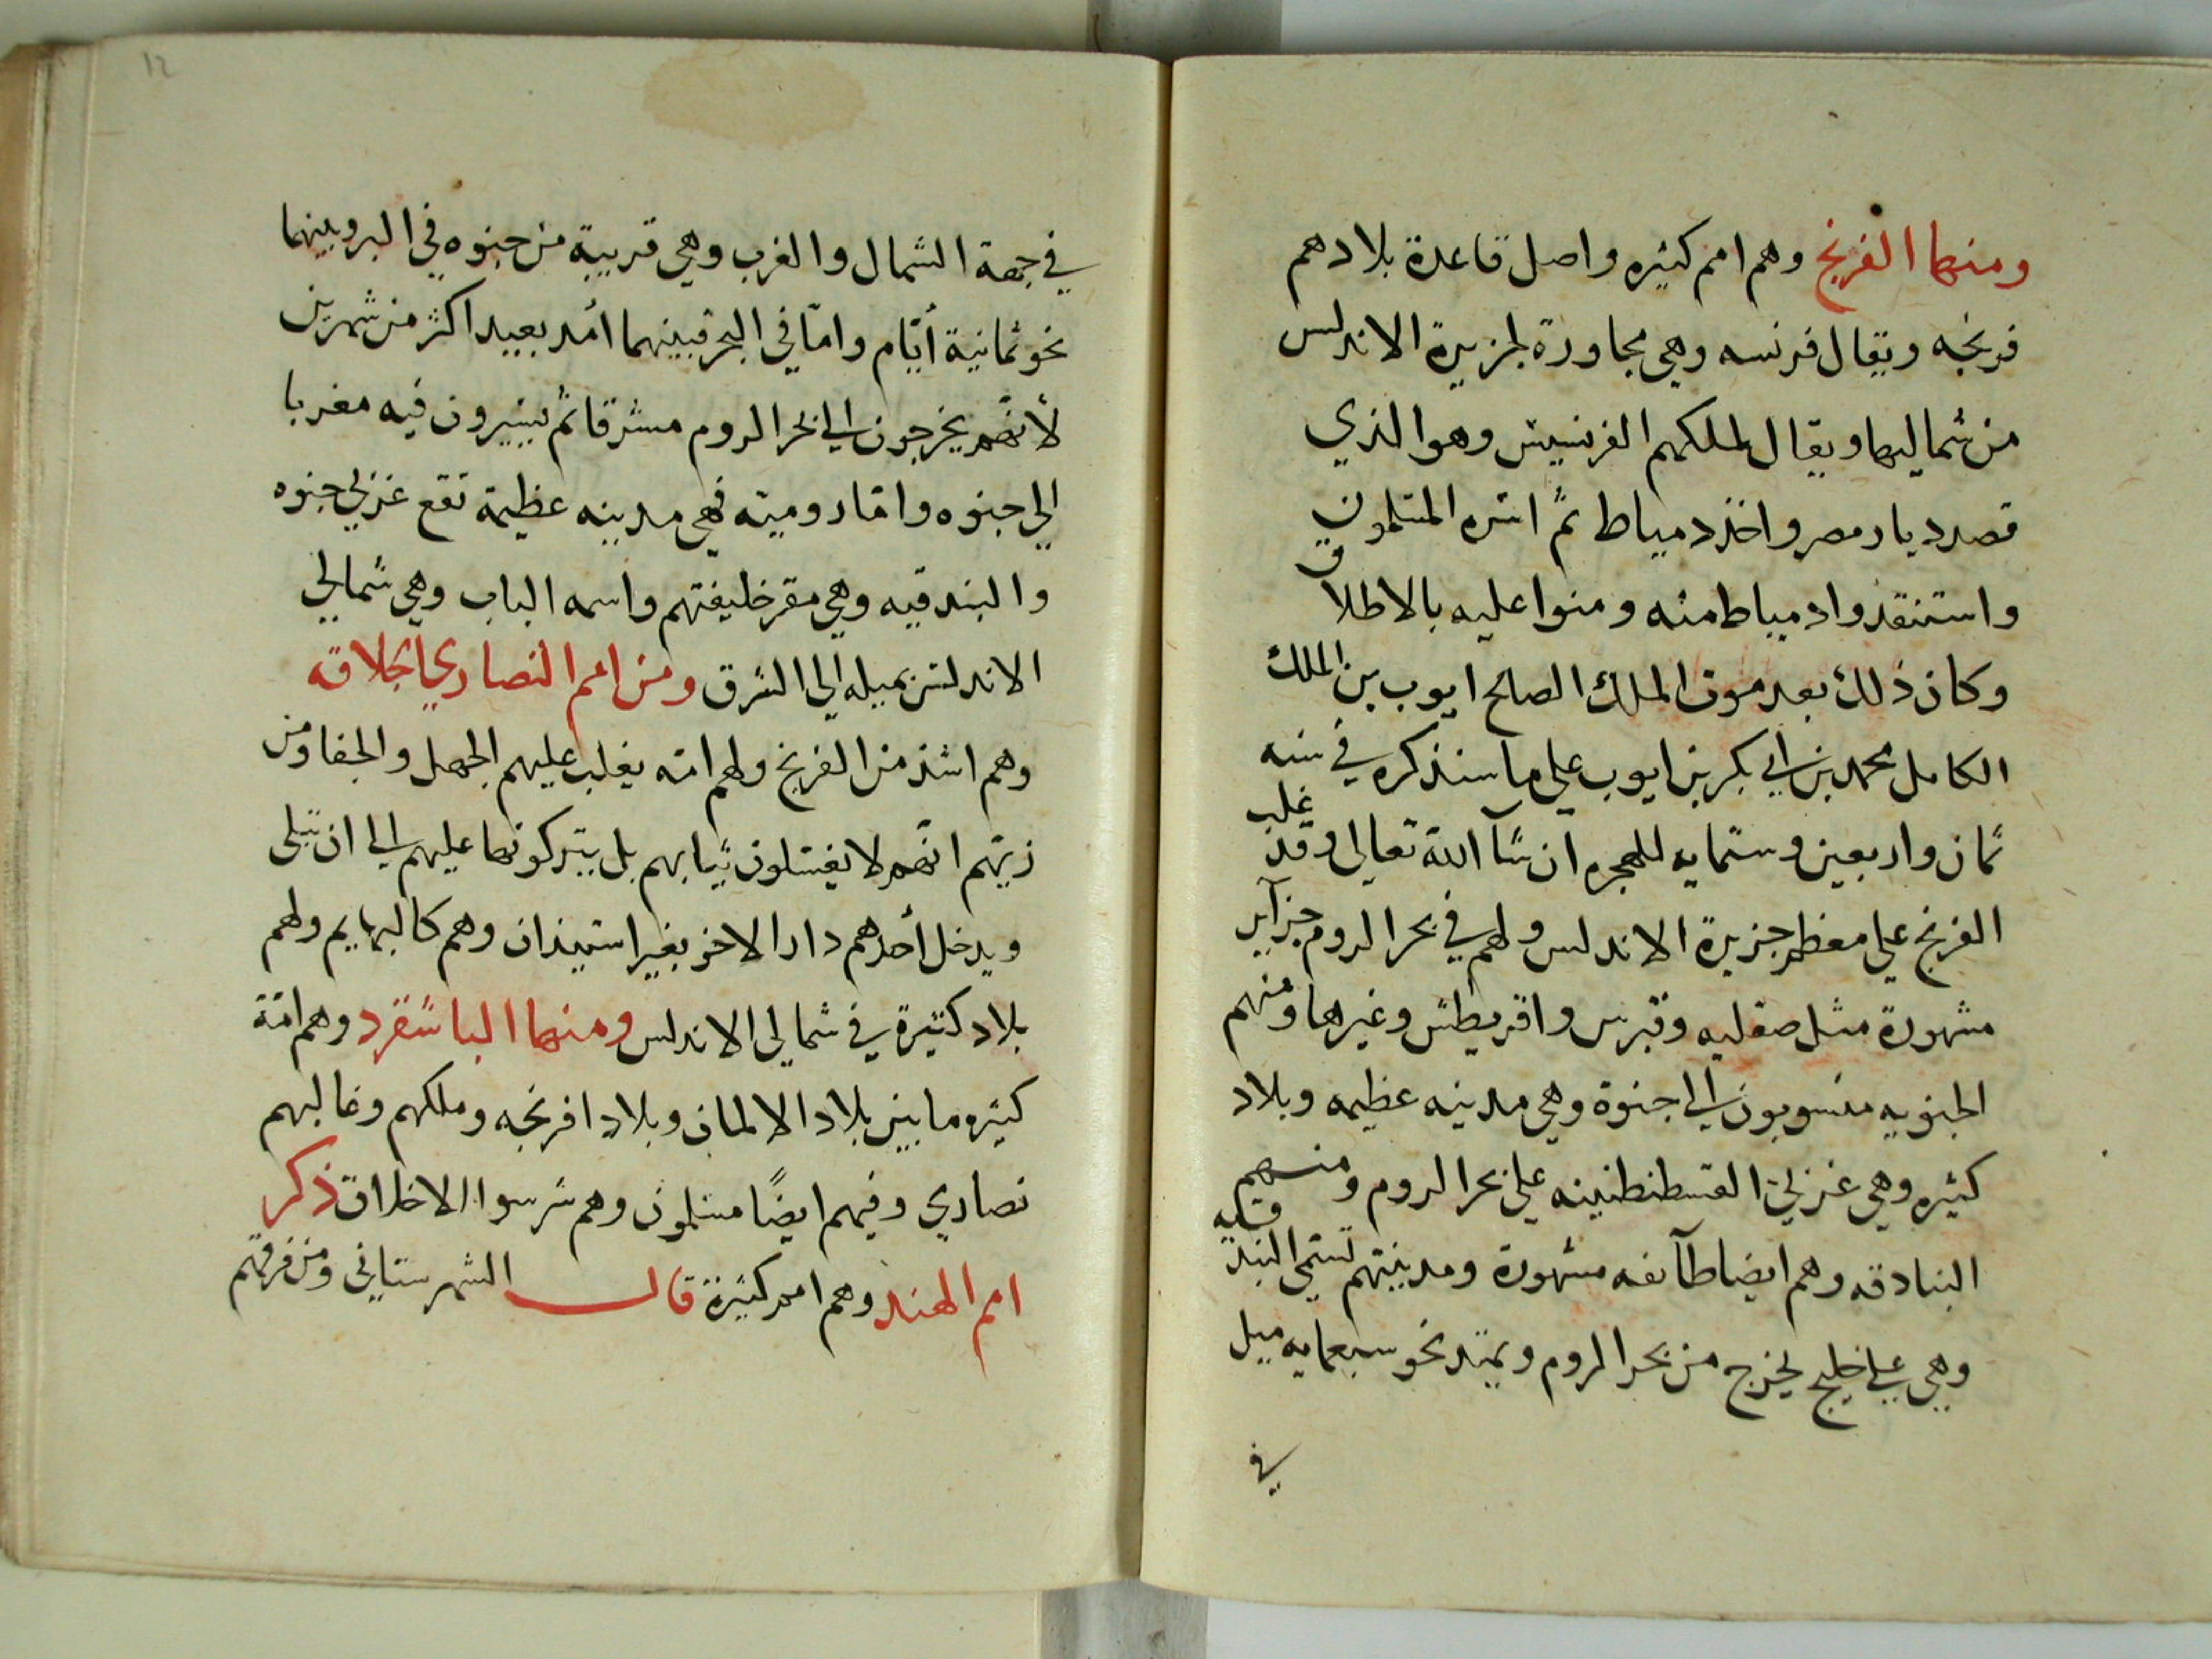 ومنها الفرنج وهم امم كثيره واصل قاعدة بلادهم
فرنجه ويقال فرنسه وهي مجاورة لجزيرة الاندلس
من شماليها ويقال لملكهم الفرنسيس وهو الذي
قصد ديار مصر واخذ دمياط ثم اسره المسلمون
واستنقذوا دمياط منه ومنوا عليه بالاطلاق
وكان ذلك بعد موت الملك الصالح ايوب بن الملك
الكامل محمد بن ابي بكر بن ايوب علي ما سنذكره في سنه
ثمان واربعين وستمايه للهجره ان شآ الله تعالي وقد غلب
الفرنج علي معظم جزيرة الاندلس ولهم في بحر الروم جزآير
مشهورة مثل صقليه وقبرس واقريطش وغيرها ومنهم
الجنويه منسوبون الي جنوة وهي مدينه عظيمه وبلاد
كثيره وهي غربي القسطنطينيه علي بحر الروم ومنهم
البنادقه وهم ايضا طآئفه مشهورة ومدينتهم تسمي البندقيه
وهي علي خليج يخرج من بحر الروم ويمتد نحو سبعمايه ميل
في
١٢
في جهة الشمال والغرب وهي قريبة من جنوه في البر وبينهما
نحو ثمانية أيّام وامّا في البحر فبينهما أمد بعيد اكثر من شهرين
لأنهم يخرجون الي بحر الروم مشرقا ثم يسيرون فيه مغربا
الي جنوه وامّا روميّه فهي مدينه عظيمة تقع غربي جنوه
والبندقيه وهي مقر خليفتهم واسمه الباب وهي شمالي
الاندلس بميله الي الشرق ومن امم النصاري الجلاقه
وهم اشد من الفرنج ولهم امّه يغلب عليهم الجهل والجفا ومن
زيّهم انّهم لا يغسلون ثيابهم بل يتركونها عليهم الي ان تبلي
ويدخل أحدهم دار الاخر بغير استيذان وهم كالبهايم ولهم
بلاد كثيرة في شمالي الاندلس ومنها الباشقرد وهم امّة
كثيره ما بين بلاد الالمان وبلاد افرنجه وملكهم وغالبهم
نصاري وفيهم ايضًا مسلمون وهم شرسوا الاخلاق ذكر
امم الهند وهم امم كثيرة قال الشهرستاني ومن فرقهم